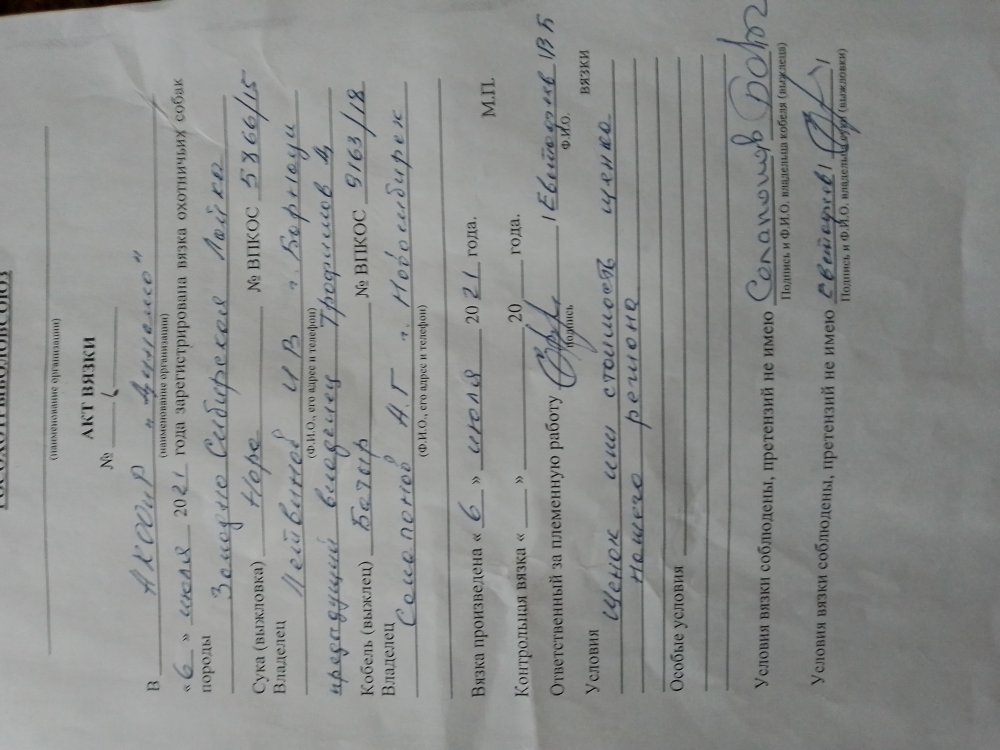 РОСОХОТРЫБОЛОВСОЮЗ
(наименование организации)
АКТ ВЯЗКИ
№ 6
В АКООиР "Динамо"
(наименование организации)
« 6 » июля 2021 года зарегистрирована вязка охотничьих собак
породы Западно Сибирская Лайка
Сука (выжловка) Нора № ВПКОС 5866/15
Владелец Лейтвинов И В г. Барнаул
(Ф.И.О., его адрес и телефон)
предыдущий владелец Трофимов Д
Кобель (выжлец) Батыр № ВПКОС 9163/18
Владелец Солапанов А.Г г. Новосибирск
(Ф.И.О., его адрес и телефон)
Вязка произведена « 6 » июля 2021 года. М.П.
Контрольная вязка « » 20 года.
Ответственный за племенную работу / Евтифиев /В Б
подпись Ф.И.О.
Условия вязки
Щенок или стоимость щенка
нашего региона
Особые условия
Условия вязки соблюдены, претензий не имею
Подпись и Ф.И.О. владельца кобеля (выжлеца)
Условия вязки соблюдены, претензий не имею
Подпись и Ф.И.О. владельца суки (выжловки)